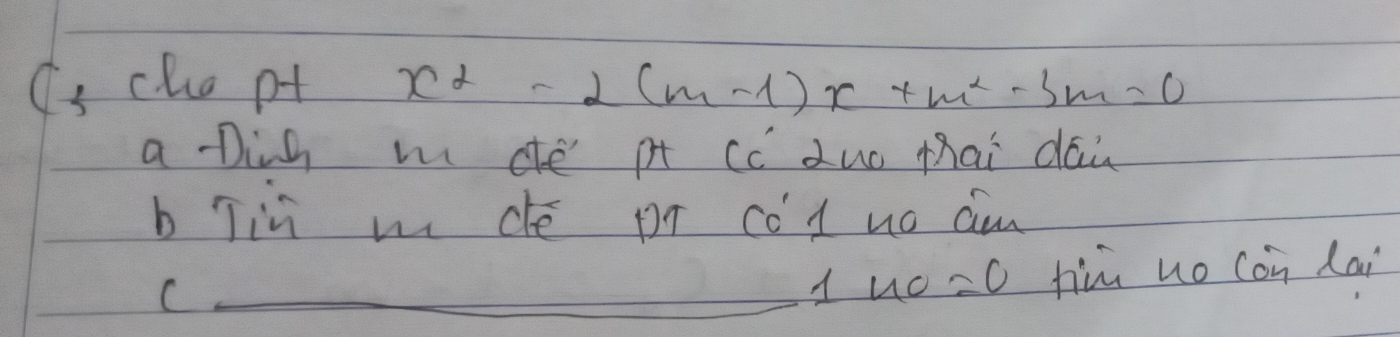 C3 cho pt x² - 2(m-1)x + m² - 3m = 0
a Định m để pt có 2 no trái dấu
b Tìm m để PT có 1 no âm
c ——— 1 no = 0 tìm no còn lại